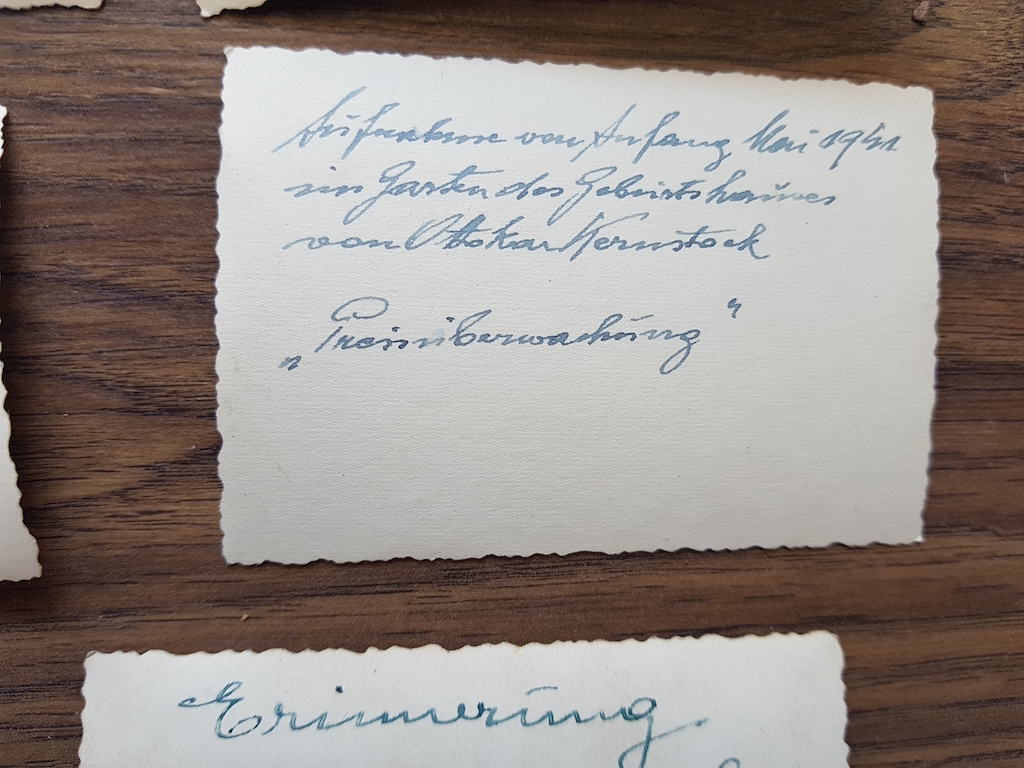 Aufnahme von Anfang Mai 1941
im Garten des Geburtshauses
von Ottokar Kernstock
„Preisüberwachung“
Erinnerung.